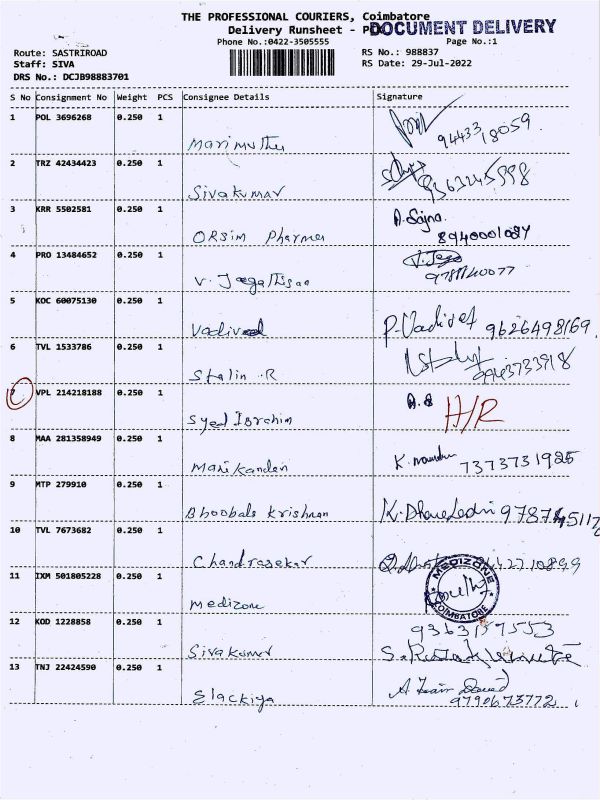 THE PROFESSIONAL COURIERS, Coimbatore
Delivery Runsheet - DOCUMENT DELIVERY
Phone No.:0422-3505555 Page No.:1
Route: SASTRIROAD RS No.: 988837
Staff: SIVA RS Date: 29-Jul-2022
DRS No.: DCJB98883701
S No Consignment No Weight PCS Consignee Details Signature
1 POL 3696268 0.250 1
Marimuthu 9443318059.
2 TRZ 42434423 0.250 1
Sivakumar 9363245998
3 KRR 5502581 0.250 1 A. Sajna.
ORSim Pharma 8940001084
4 PRO 13484652 0.250 1 V. Jega
V. Jegathisan
5 KOC 60075130 0.250 1
P. Vadivel 9626498169.
6 TVL 1533786 0.250 1
Stalin .R 9943733918
7 VPL 214218188 0.250 1 A.S H/R
Syed Ibrahim
8 MAA 281358949 0.250 1
Manikandan K. 7373731985
9 MTP 279910 0.250 1
Bhoobala Krishnan
10 TVL 7673682 0.250 1
Chandrasekar
11 IXM 501805228 0.250 1 MEDIZONE
Medizone COIMBATORE
12 KOD 1228858 0.250 1 9363157553
Sivakumar
13 TNJ 22424590 0.250 1
Elackiya 9790673772